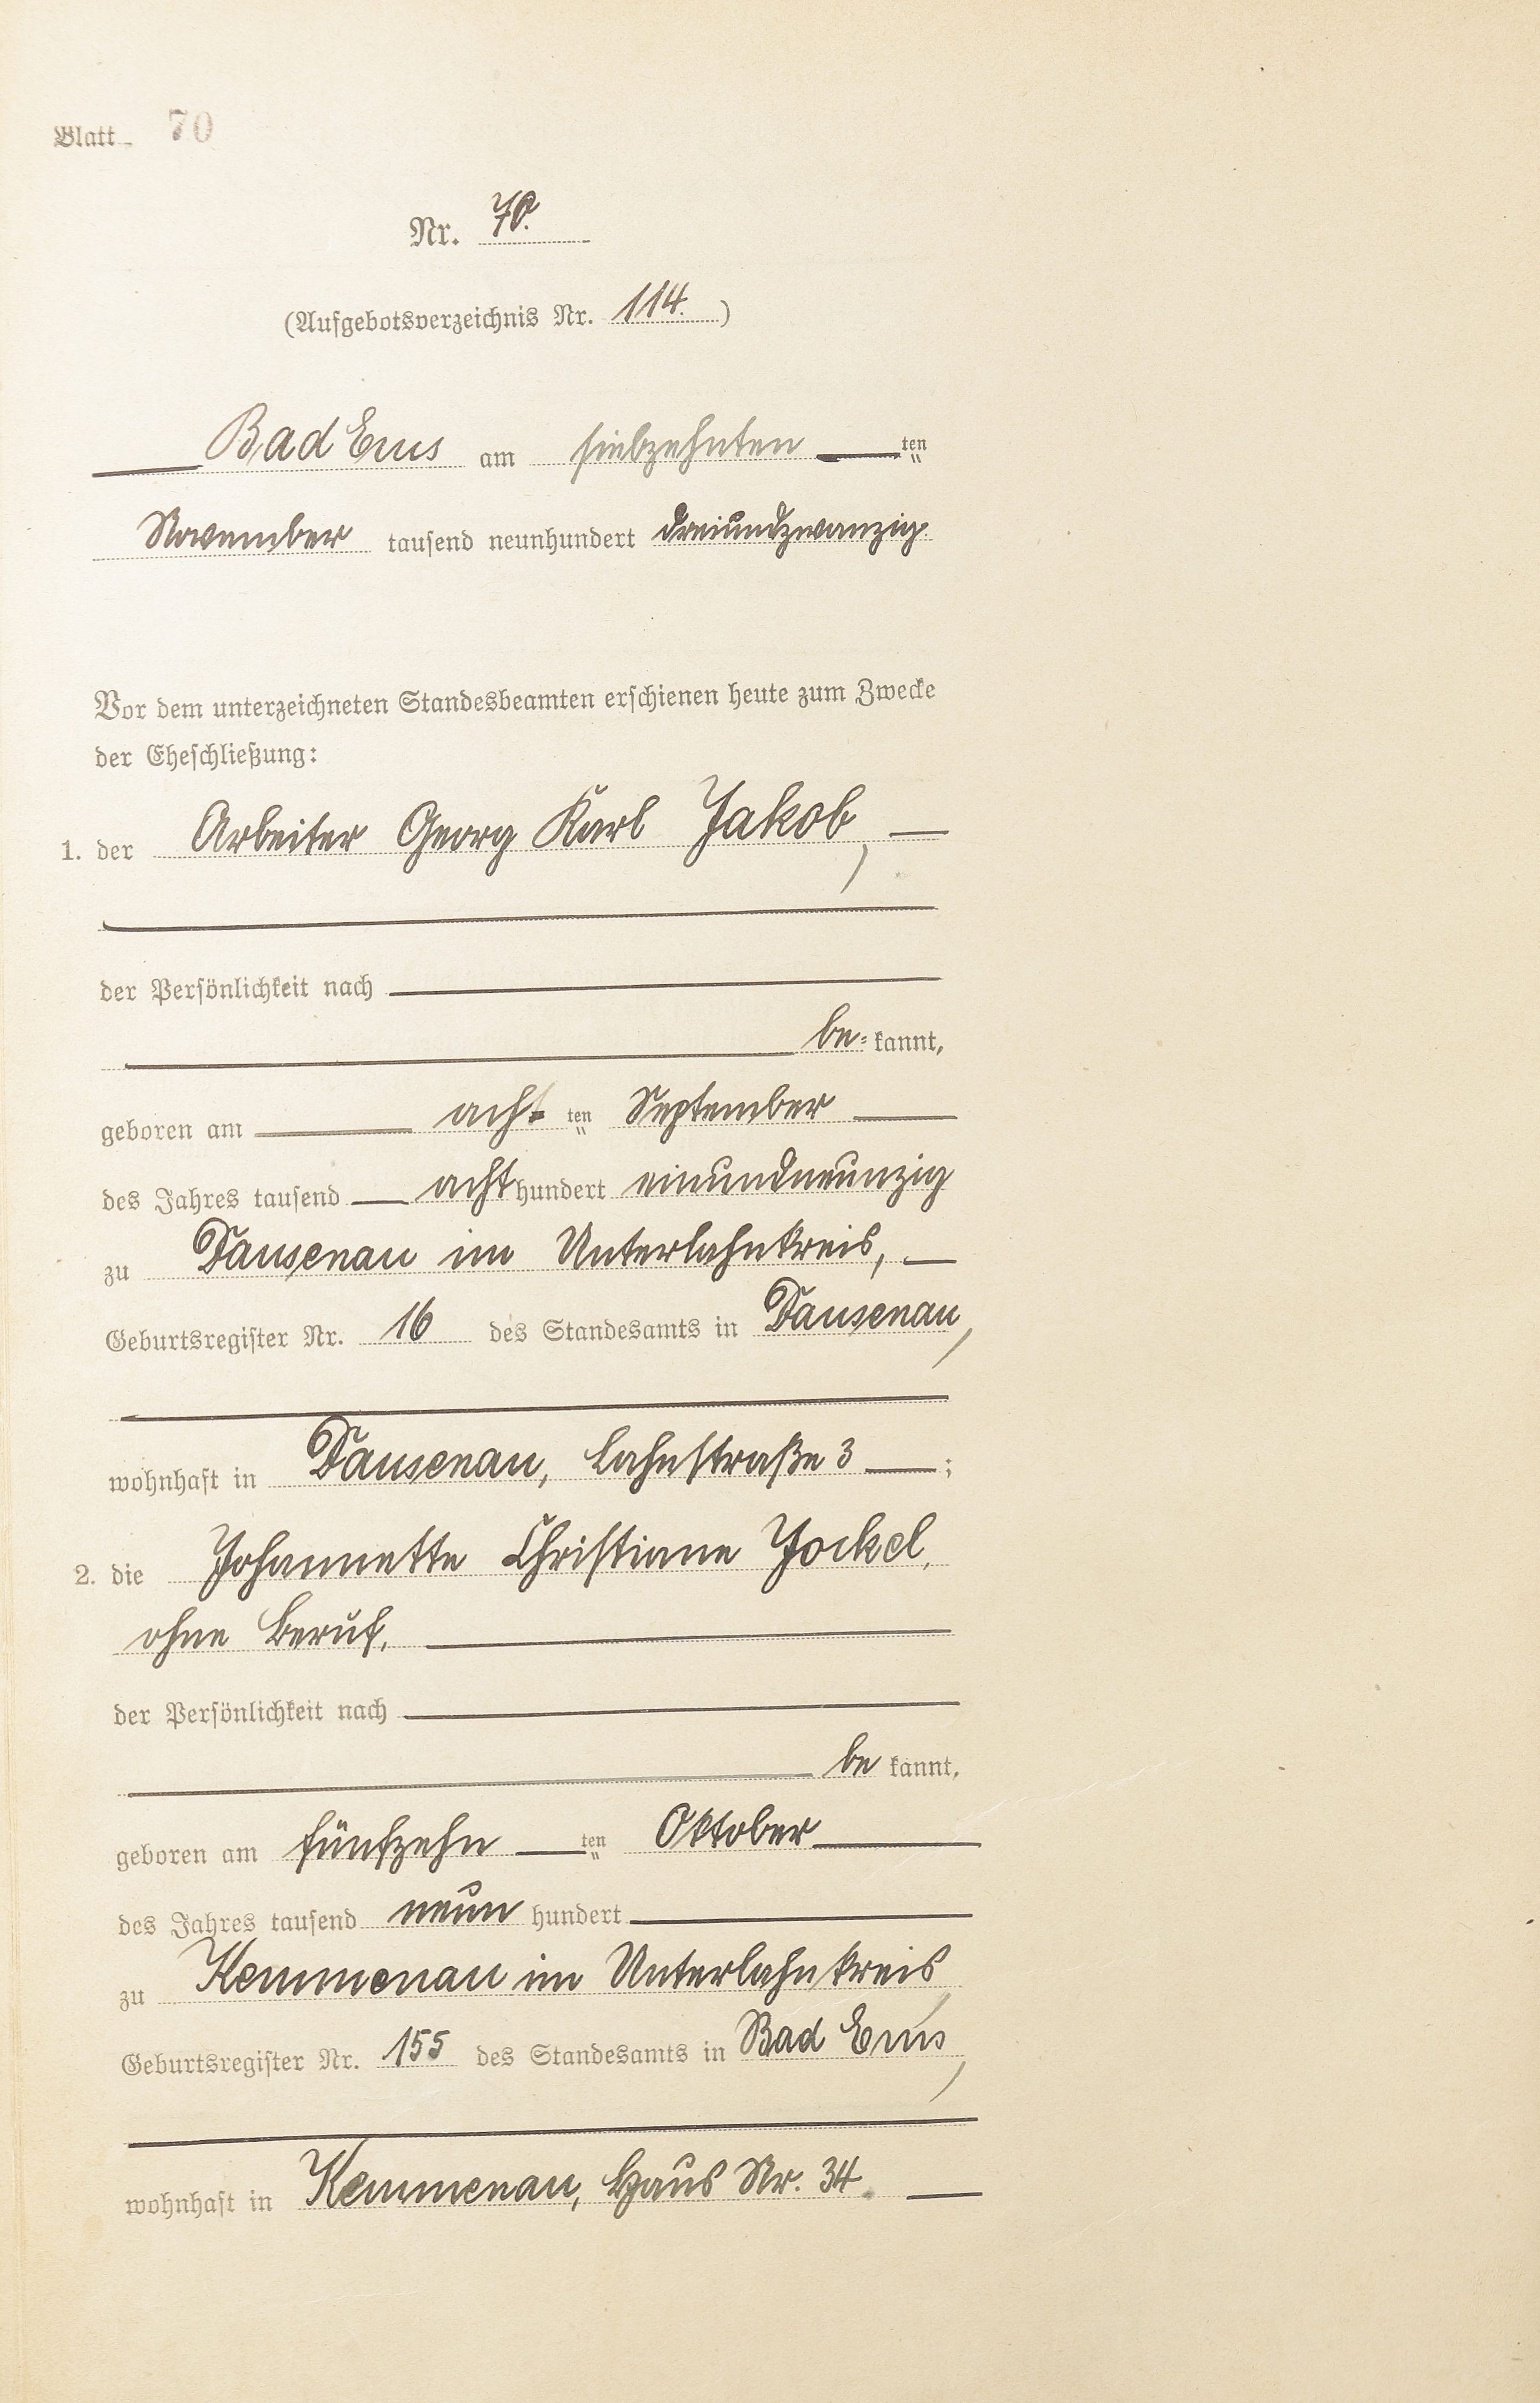 Blatt 70
Nr. 70.
(Aufgebotsverzeichnis Nr. 114.)
Bad Ems am siebzehnten ten
November tausend neunhundert dreiundzwanzig.
Vor dem unterzeichneten Standesbeamten erschienen heute zum Zwecke
der Eheschließung:
1. der Arbeiter Georg Karl Jakob,
der Persönlichkeit nach
be= kannt,
geboren am acht ten September
des Jahres tausend acht hundert einundneunzig
zu Dausenau im Unterlahnkreis,
Geburtsregister Nr. 16 des Standesamts in Dausenau,
wohnhaft in Dausenau, Lahnstraße 3 ;
2. die Johannette Christiane Jockel,
ohne Beruf,
der Persönlichkeit nach
be kannt,
geboren am fünfzehn ten Oktober
des Jahres tausend neun hundert
zu Kemmenau im Unterlahnkreis,
Geburtsregister Nr. 155 des Standesamts in Bad Ems,
wohnhaft in Kemmenau, Haus Nr. 34.